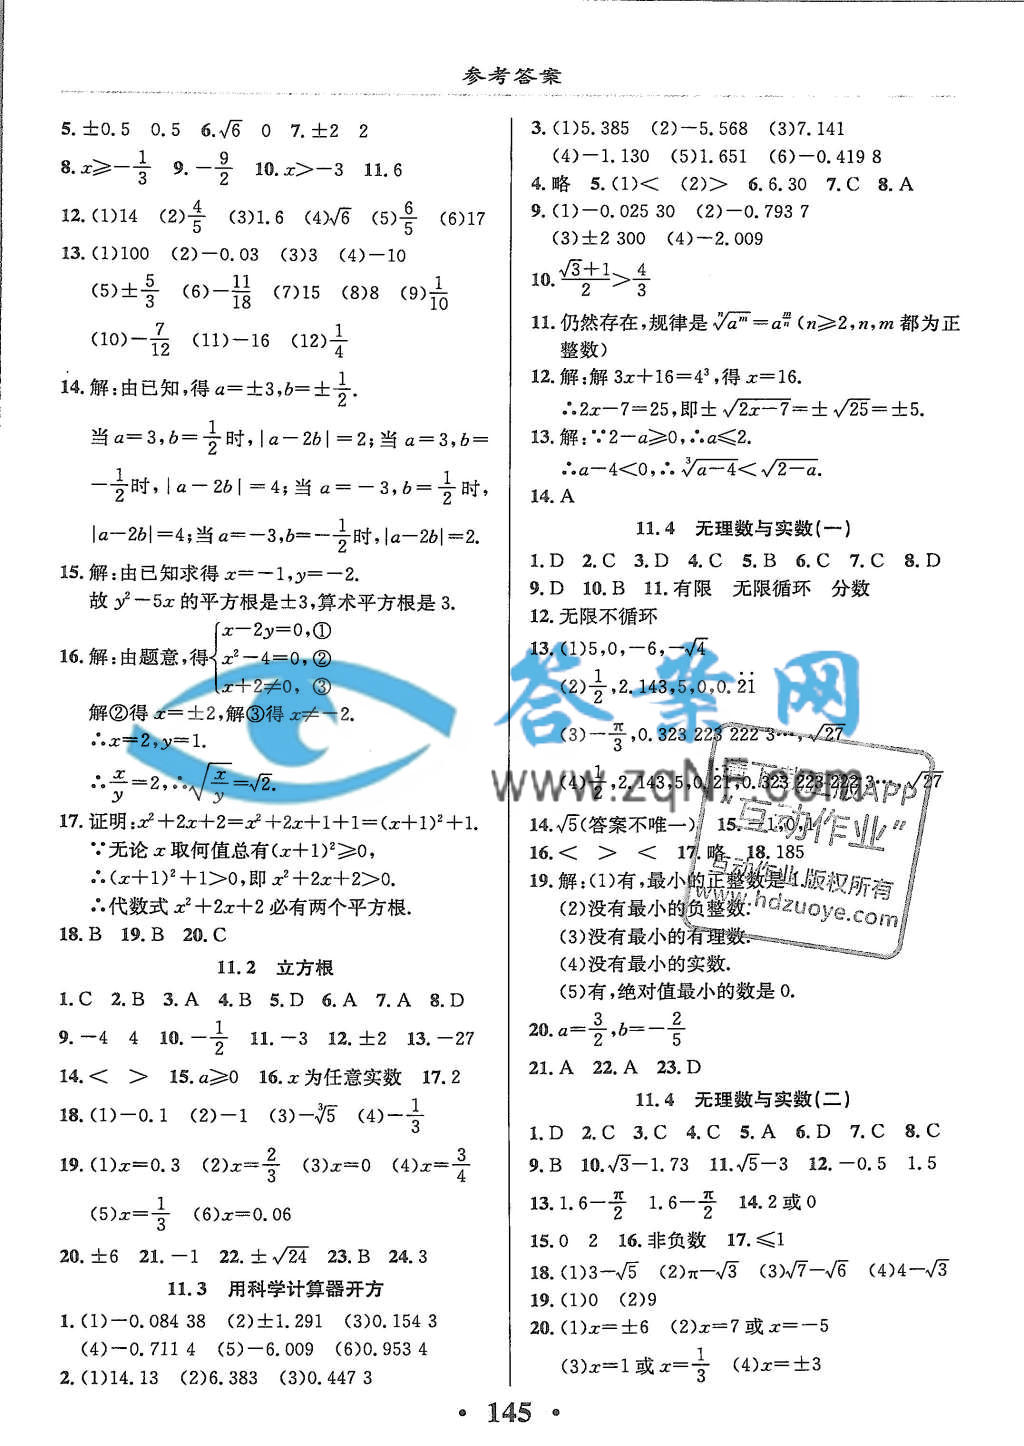 参考答案
5. ±0.5 0.5 6. √6 0 7. ±2 2
8. x≥-1/3 9. -9/2 10. x>-3 11. 6
12. (1)14 (2)4/5 (3)1.6 (4)√6 (5)6/5 (6)17
13. (1)100 (2)-0.03 (3)3 (4)-10
(5)±5/3 (6)-11/18 (7)15 (8)8 (9)1/10
(10)-7/12 (11)-16 (12)1/4
14. 解:由已知,得 a=±3,b=±1/2.
当 a=3,b=1/2时,|a-2b|=2;当 a=3,b=
-1/2时,|a-2b|=4;当 a=-3,b=1/2时,
|a-2b|=4;当 a=-3,b=-1/2时,|a-2b|=2.
15. 解:由已知求得 x=-1,y=-2.
故 y²-5x 的平方根是±3,算术平方根是 3.
16. 解:由题意,得{x-2y=0,① x²-4=0,② x+2≠0, ③
解②得 x=±2,解③得 x≠-2.
∴x=2,y=1.
∴x/y=2,∴√(x/y)=√2.
17. 证明:x²+2x+2=x²+2x+1+1=(x+1)²+1.
∵无论 x 取何值总有(x+1)²≥0,
∴(x+1)²+1>0,即 x²+2x+2>0.
∴代数式 x²+2x+2 必有两个平方根.
18. B 19. B 20. C
11.2 立方根
1. C 2. B 3. A 4. B 5. D 6. A 7. A 8. D
9. -4 4 10. -1/2 11. -3 12. ±2 13. -27
14. < > 15. a≥0 16. x 为任意实数 17. 2
18. (1)-0.1 (2)-1 (3)-³√5 (4)-1/3
19. (1)x=0.3 (2)x=2/3 (3)x=0 (4)x=3/4
(5)x=1/3 (6)x=0.06
20. ±6 21. -1 22. ±√24 23. B 24. 3
11.3 用科学计算器开方
1. (1)-0.084 38 (2)±1.291 (3)0.154 3
(4)-0.711 4 (5)-6.009 (6)0.953 4
2. (1)14.13 (2)6.383 (3)0.447 3
3. (1)5.385 (2)-5.568 (3)7.141
(4)-1.130 (5)1.651 (6)-0.419 8
4. 略 5. (1)< (2)> 6. 6.30 7. C 8. A
9. (1)-0.025 30 (2)-0.793 7
(3)±2 300 (4)-2.009
10. (√3+1)/2>4/3
11. 仍然存在,规律是 ⁿ√(aᵐ)=a^(m/n)(n≥2,n,m 都为正
整数)
12. 解:解 3x+16=4³,得 x=16.
∴2x-7=25,即±√(2x-7)=±√25=±5.
13. 解:∵2-a≥0,∴a≤2.
∴a-4<0,∴³√(a-4)<√(2-a).
14. A
11.4 无理数与实数(一)
1. D 2. C 3. D 4. C 5. B 6. C 7. C 8. D
9. D 10. B 11. 有限 无限循环 分数
12. 无限不循环
13. (1)5,0,-6,-√4
(2)1/2,2.143,5,0,0.2̇1̇
(3)-π/3,0.323 223 222 3…,√27
(4)1/2,2.143,5,0,0.2̇1̇,0.323 223 222 3…,√27
14. √5(答案不唯一) 15. -1,0,1
16. < > < 17. 略 18. 185
19. 解:(1)有,最小的正整数是 1.
(2)没有最小的负整数.
(3)没有最小的有理数.
(4)没有最小的实数.
(5)有,绝对值最小的数是 0.
20. a=3/2,b=-2/5
21. A 22. A 23. D
11.4 无理数与实数(二)
1. D 2. C 3. C 4. C 5. A 6. D 7. C 8. C
9. B 10. √3-1.73 11. √5-3 12. -0.5 1.5
13. 1.6-π/2 1.6-π/2 14. 2 或 0
15. 0 2 16. 非负数 17. ≤1
18. (1)3-√5 (2)π-√3 (3)√7-√6 (4)4-√3
19. (1)0 (2)9
20. (1)x=±6 (2)x=7 或 x=-5
(3)x=1 或 x=1/3 (4)x=±3
· 145 ·
答案网
www.zqNF.com
"互动作业"
互动作业版权所有
www.hdzuoye.com